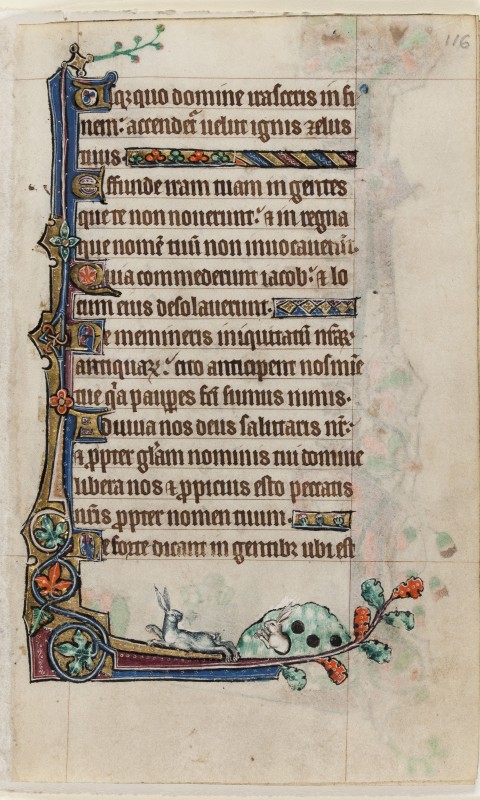 116
Usq̨quo domine irasceris in fi
nem: accendet᷑ uelut ignis zelus
tuus.
Effunde iram tuam in gentes
que te non nouerunt: ⁊ in regna
que nomē tuū non inuocauerūt.
Quia commederunt iacob: ⁊ lo
cum eius desolauerunt.
Ne memineris iniquitatū nr̄aꝝ
antiquaꝝ: cito anticipent nos mīe
tue q̄a paup̱es fc̄i sumus nimis.
Adiuua nos deus salutaris nr̄:
⁊ ꝓpter glām nominis tui domine
libera nos ⁊ ꝓpicius esto peccatis
nr̄is ꝓpter nomen tuum.
Ne forte dicant in gentibꝫ ubi est